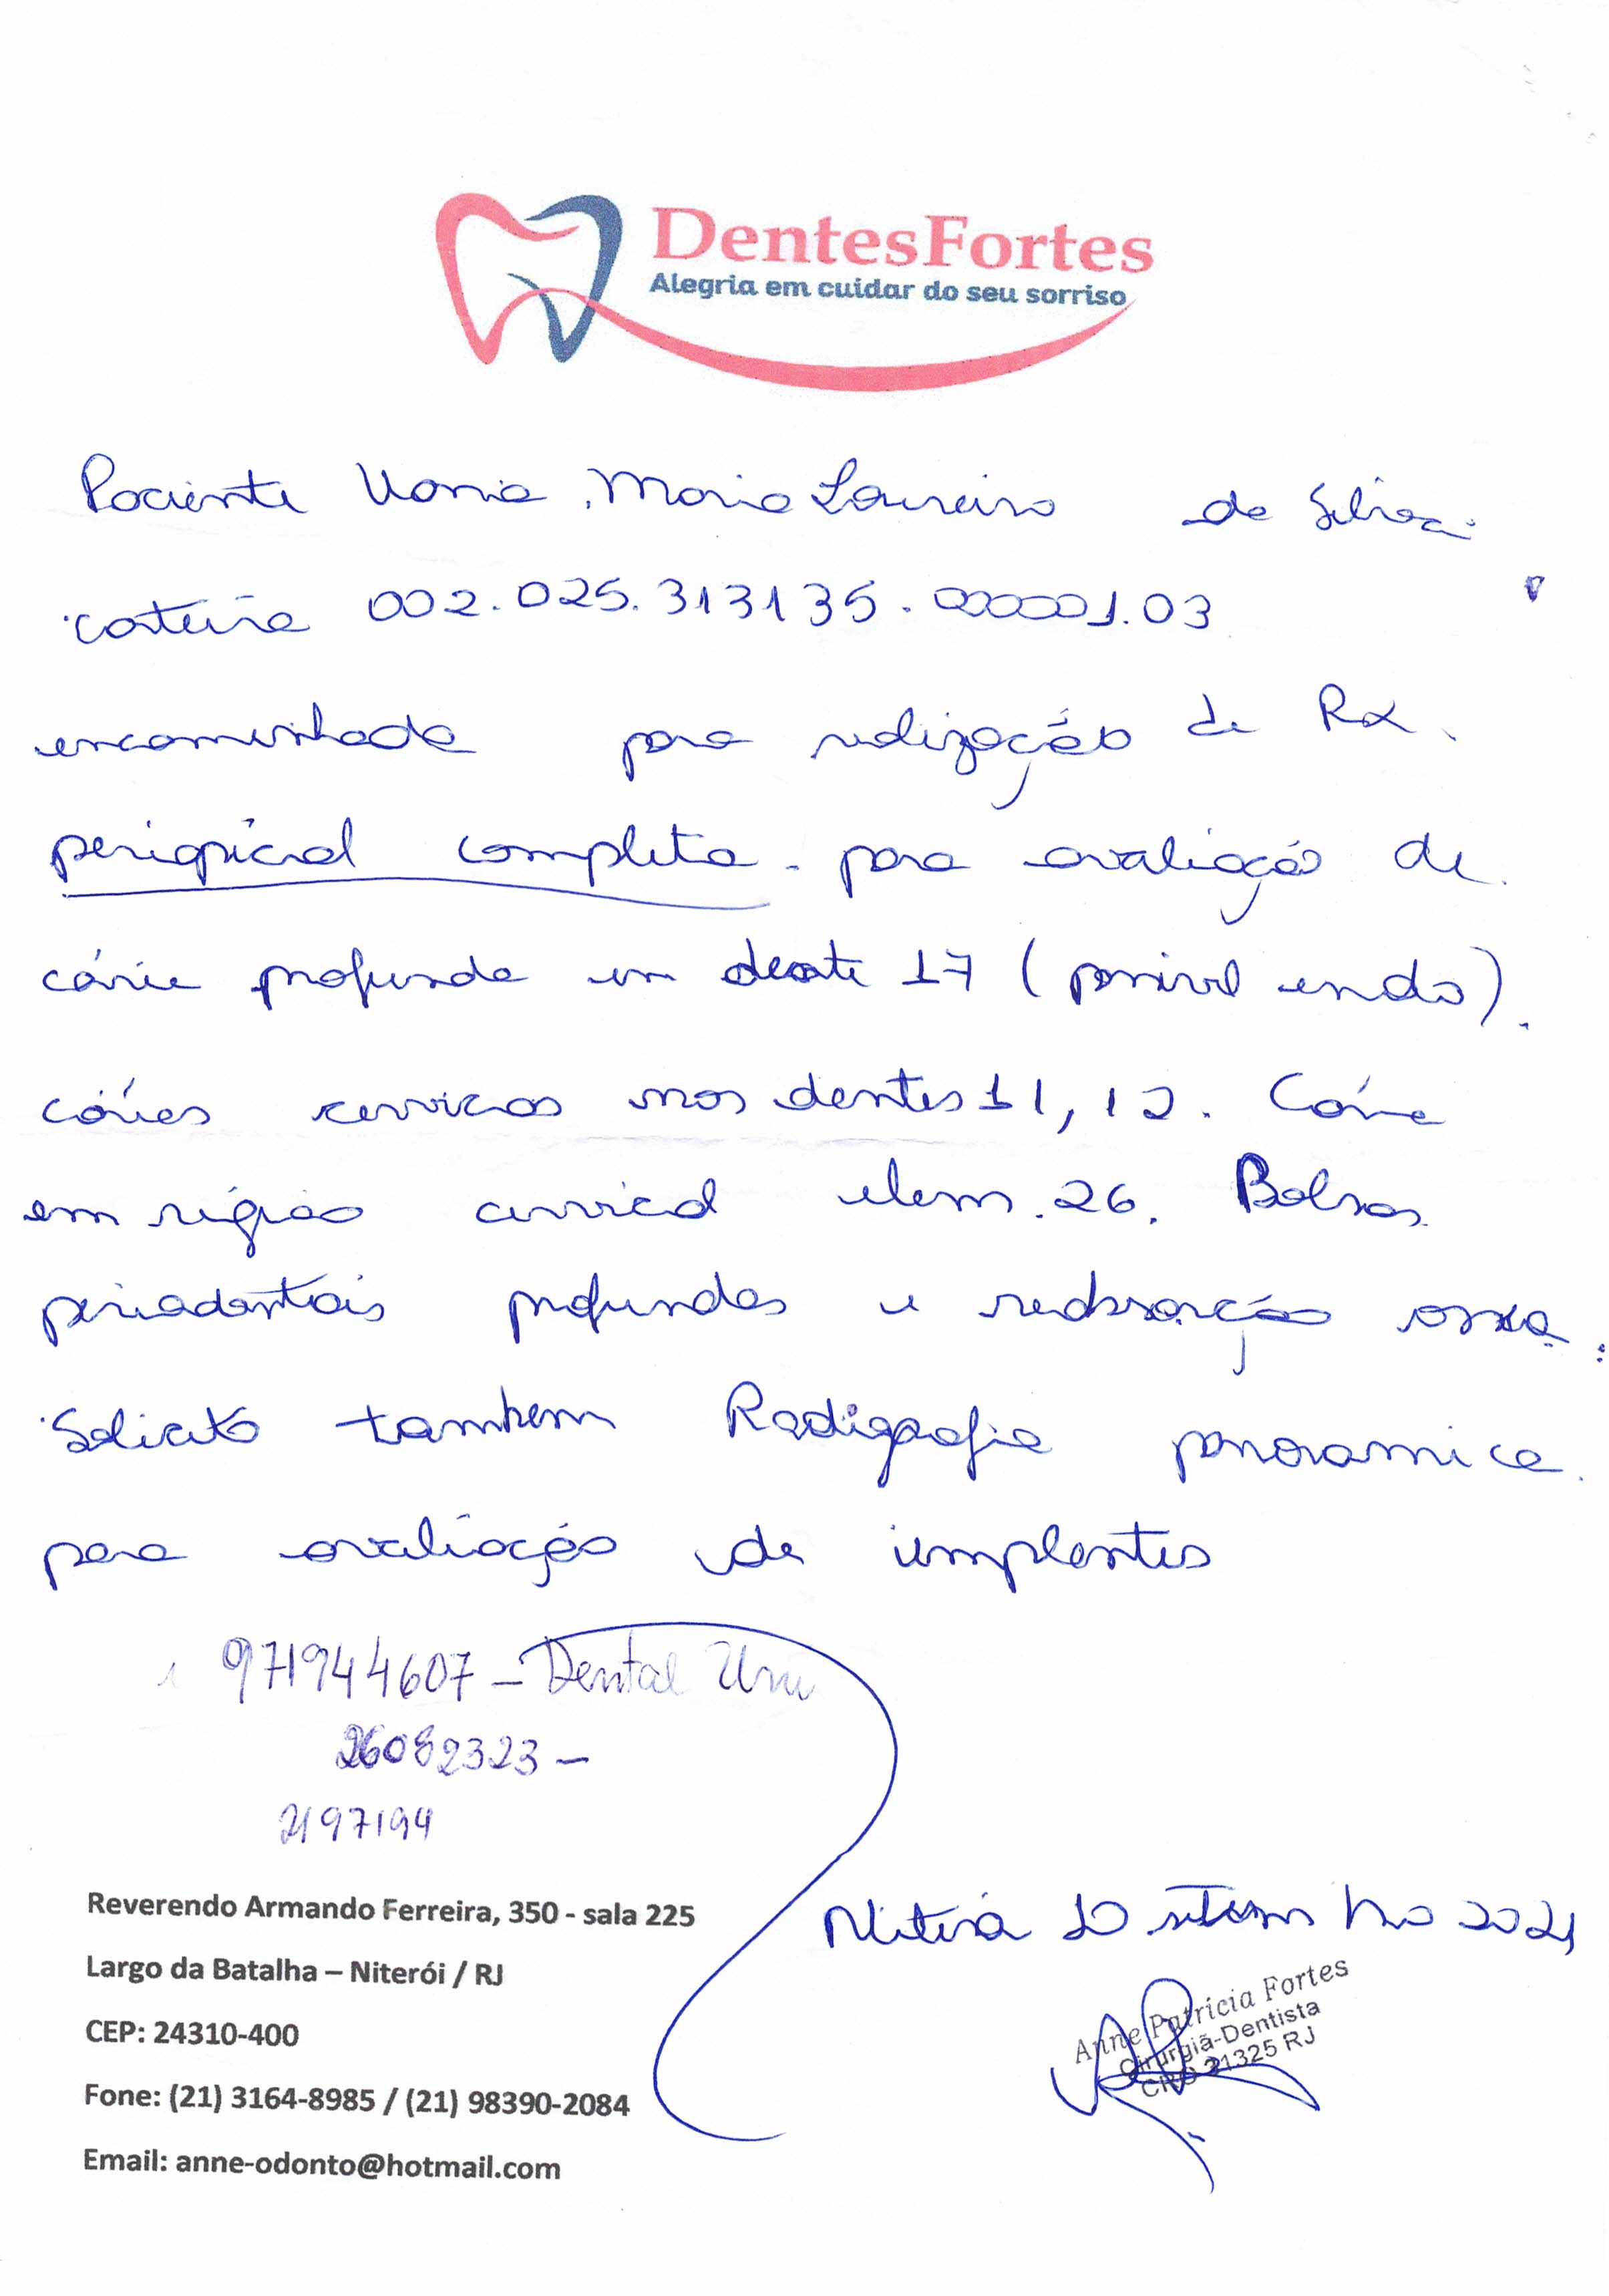 DentesFortes
Alegria em cuidar do seu sorriso
Paciente Vania Maria Loureiro da Silva
carteira 002.025.313135.000001.03
encaminhada para realização de Rx
periapical completa para avaliação de
cárie profunda em dente 17 (possível endo).
cáries cervicais nos dentes 11, 12. Cárie
em região cervical elem. 26. Bolsas
periodontais profundas e reabsorção óssea.
Solicito também Radiografia panoramica
para avaliação de implantes
971944607 – Dental Uni
26082323 –
2197194
Reverendo Armando Ferreira, 350 - sala 225
Largo da Batalha – Niterói / RJ
CEP: 24310-400
Fone: (21) 3164-8985 / (21) 98390-2084
Email: anne-odonto@hotmail.com
Niterói 20 setembro 2021
Anne Patrícia Fortes
Cirurgiã-Dentista
CRO 21325 RJ